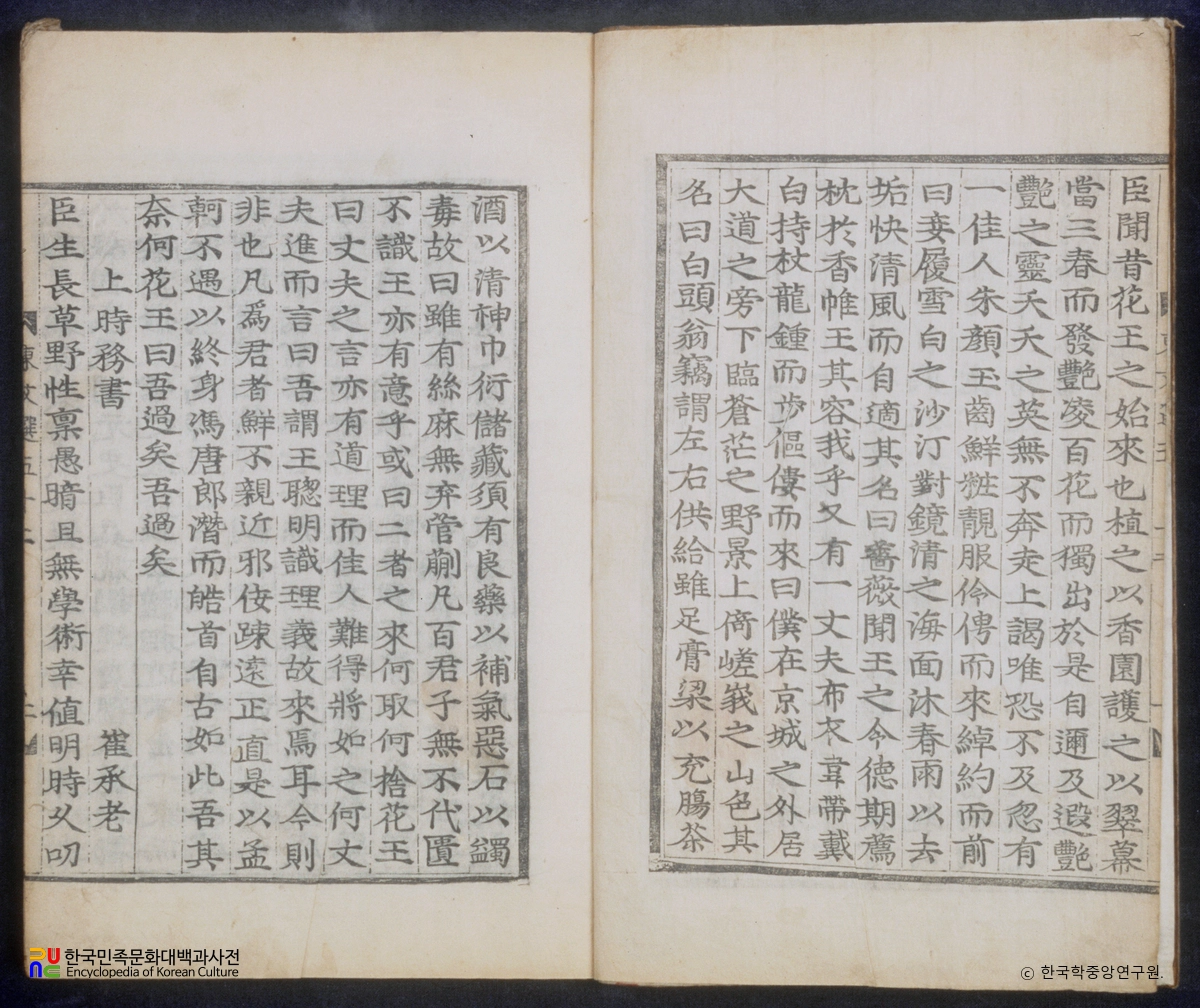 臣聞昔花王之始來也植之以香園護之以翠幕
當三春而發艷凌百花而獨出於是自邇及遐艷
艷之靈夭夭之英無不奔走上謁唯恐不及忽有
一佳人朱顔玉齒鮮粧靚服伶俜而來綽約而前
曰妾履雪白之沙汀對鏡清之海面沐春雨以去
垢快清風而自適其名曰薔薇聞王之令德期薦
枕於香帷王其容我乎又有一丈夫布衣韋帶戴
白持杖龍鍾而步傴僂而來曰僕在京城之外居
大道之旁下臨蒼茫之野景上倚嵯峩之山色其
名曰白頭翁竊謂左右供給雖足膏粱以充膓茶
酒以清神巾衍儲藏須有良藥以補氣惡石以蠲
毒故曰雖有絲麻無弃管蒯凡百君子無不代匱
不識王亦有意乎或曰二者之來何取何捨花王
曰丈夫之言亦有道理而佳人難得將如之何丈
夫進而言曰吾謂王聰明識理義故來焉耳今則
非也凡爲君者鮮不親近邪侫踈遠正直是以孟
軻不遇以終身馮唐郎潛而皓首自古如此吾其
奈何花王曰吾過矣吾過矣
上時務書 崔承老
臣生長草野性禀愚暗且無學術幸値明時久叨
東文選五十二
한국민족문화대백과사전
Encyclopedia of Korean Culture
ⓒ 한국학중앙연구원.